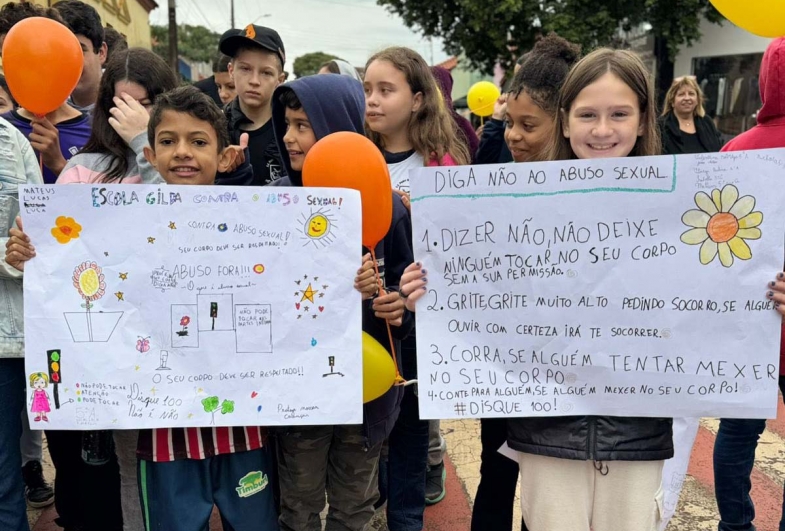 MATEUS
LUCAS
LUCA
ESCOLA GILDA CONTRA ABUSO SEXUAL!
CONTRA ABUSO SEXUAL!
SEU CORPO DEVE SER RESPEITADO!
ABUSO FORA!!!
NÃO PODE
TOCAR NOS
O SEU CORPO DEVE SER RESPEITADO!!
NÃO PODE TOCAR
ATENÇÃO
PODE TOCAR
Disque 100
Não é não
DIGA NÃO AO ABUSO SEXUAL.
1. DIZER NÃO, NÃO DEIXE
NINGUÉM TOCAR NO SEU CORPO
SEM A SUA PERMISSÃO.
2. GRITE, GRITE MUITO ALTO PEDINDO SOCORRO, SE ALGUÉM
OUVIR COM CERTEZA IRÁ TE SOCORRER.
3. CORRA, SE ALGUÉM TENTAR MEXER
NO SEU CORPO
4. CONTE PARA ALGUÉM, SE ALGUÉM MEXER NO SEU CORPO!
#DISQUE 100!
Timbu